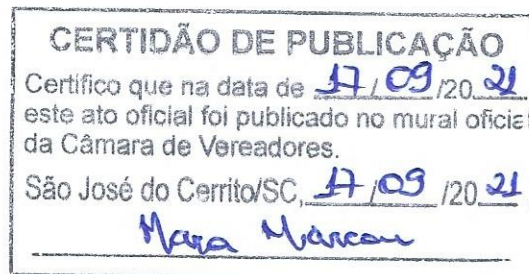 CERTIDÃO DE PUBLICAÇÃO
Certifico que na data de 17/09/2021
este ato oficial foi publicado no mural oficial
da Câmara de Vereadores.
São José do Cerrito/SC, 17/09/2021
Mara Marcon